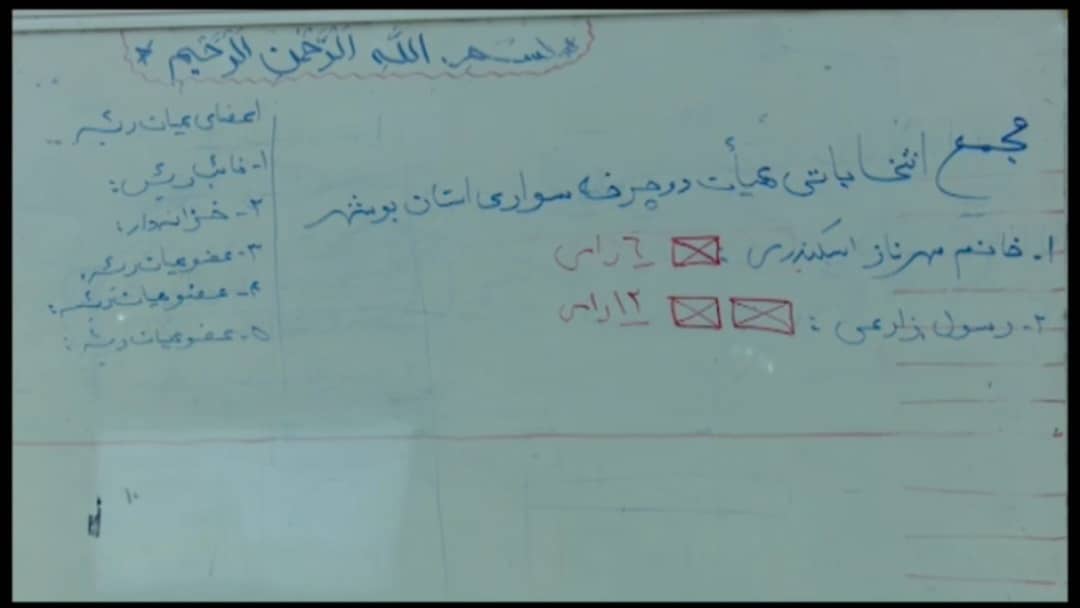 * بسم الله الرَّحْمن الرَّحیم *
مجمع انتخاباتی هیأت دوچرخه سواری استان بوشهر
۱- خانم مهرناز اسکندری : ٦ رأس
۲- رسول زارعی : ۱۲ رأس
اعضای هیات رئیسه
۱- نائب رئیس:
۲- خزانه‌دار:
۳- عضو هیات رئیسه:
۴- عضو هیات رئیسه:
۵- عضو هیات رئیسه:
۱۰